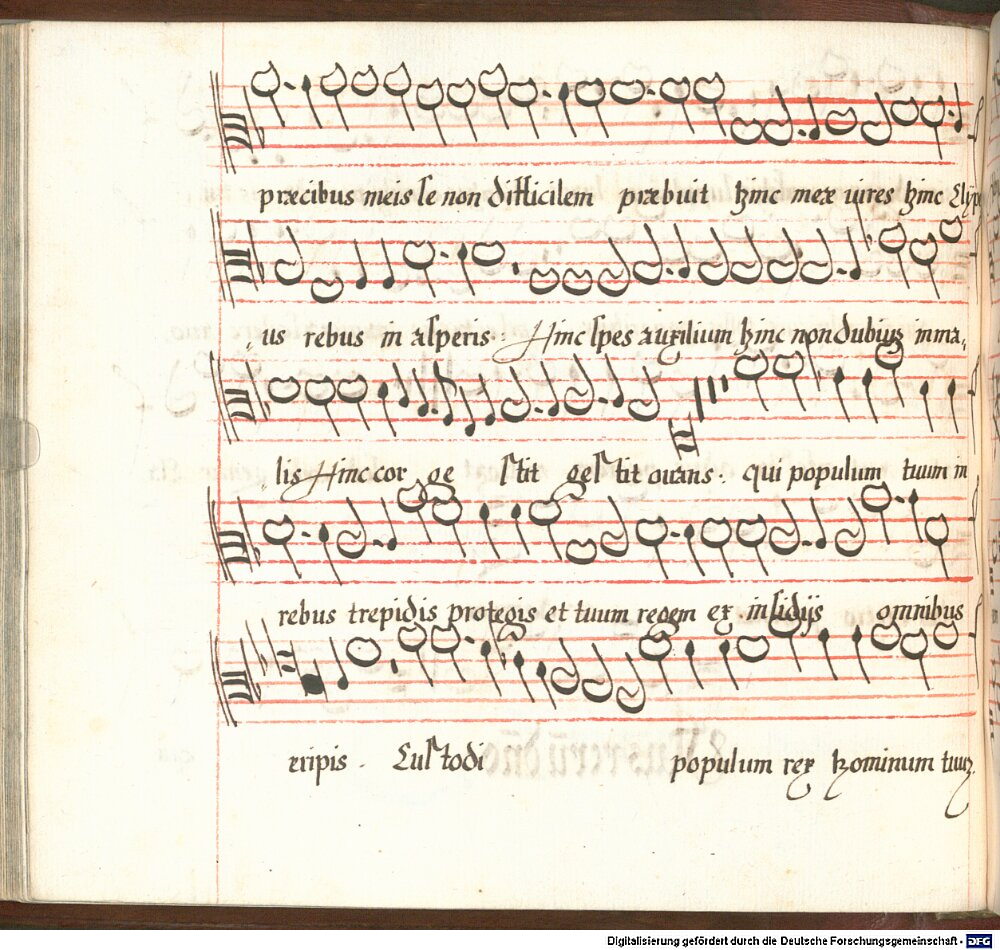 præcibus meis se non difficilem præbuit hinc meæ uires hinc Clÿpe
us rebus in asperis. Hinc spes auxilium hinc non dubiuz in ma,
lis Hinc cor ge stit gestit ouans. qui populum tuum in
rebus trepidis protegis et tuum regem ex insidÿs omnibus
eripis. Custodi populum rex hominum tuuz
Digitalisierung gefördert durch die Deutsche Forschungsgemeinschaft - DFG